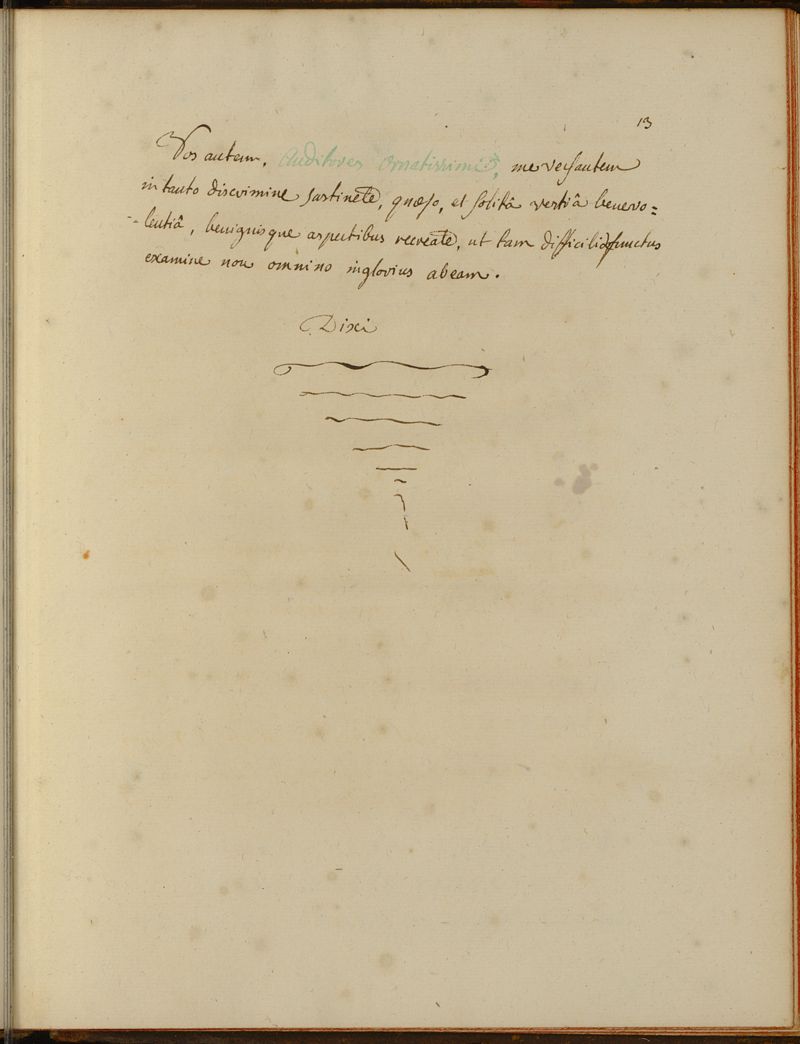 13
Vos autem, Auditores Ornatissimi, me versantem
in tanto discrimine sustinete, quæso, et solitâ vestrâ benevo=
lentiâ, benignisque aspectibus recreate, ut tam difficili defunctus
examine non omnino inglorius abeam.
Dixi